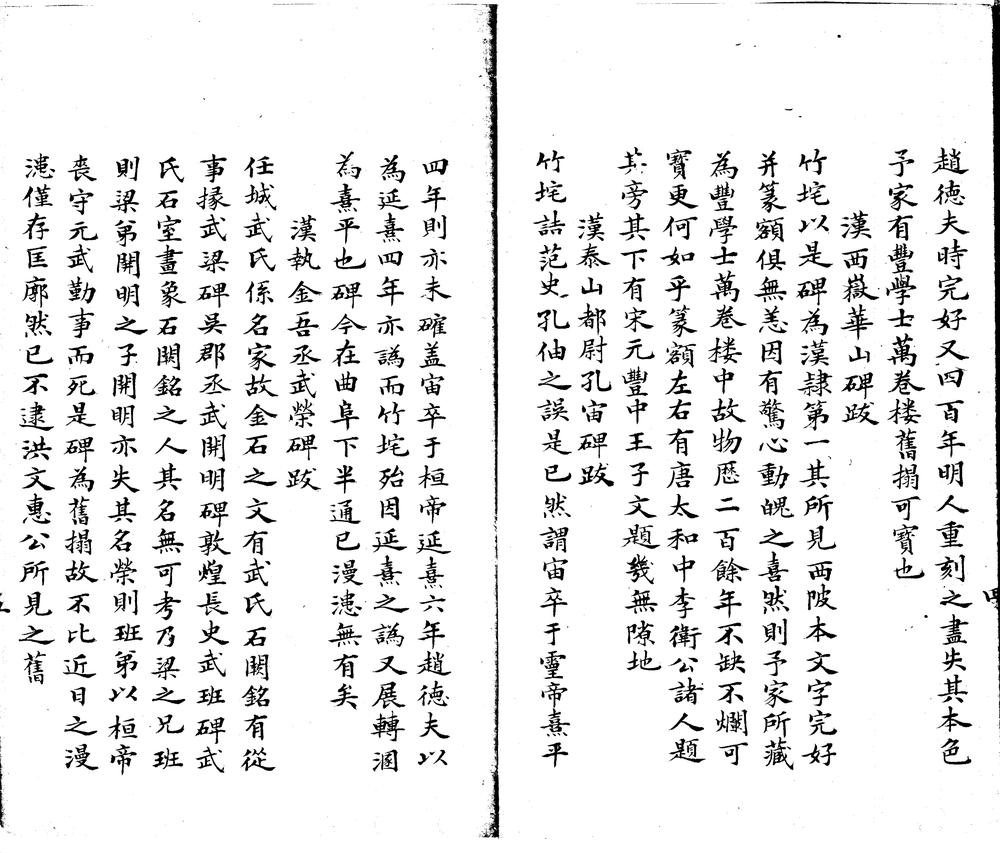 趙德夫時完好又四百年明人重刻之盡失其本色
予家有豐學士萬卷楼舊搨可寶也
漢西嶽華山碑跋
竹垞以是碑為漢隷第一其所見西陂本文字完好
并篆額俱無恙因有驚心動魄之喜然則予家所藏
為豐學士萬卷楼中故物歷二百餘年不缺不爛可
寶更何如乎篆額左右有唐太和中李衛公諸人題
其旁其下有宋元豐中王子文題幾無隙地
漢泰山都尉孔宙碑跋
竹垞詰范史孔伷之誤是已然謂宙卒于靈帝熹平
四年則亦未確盖宙卒于桓帝延熹六年趙德夫以
為延熹四年亦譌而竹垞殆因延熹之譌又展轉溷
為熹平也碑今在曲阜下半通已漫漶無有矣
漢執金吾丞武榮碑跋
任城武氏係名家故金石之文有武氏石闕銘有從
事掾武梁碑吳郡丞武開明碑敦煌長史武班碑武
氏石室畫象石闕銘之人其名無可考乃梁之兄班
則梁第開明之子開明亦失其名榮則班第以桓帝
喪守元武勤事而死是碑為舊搨故不比近日之漫
漶僅存匡廓然已不逮洪文惠公所見之舊